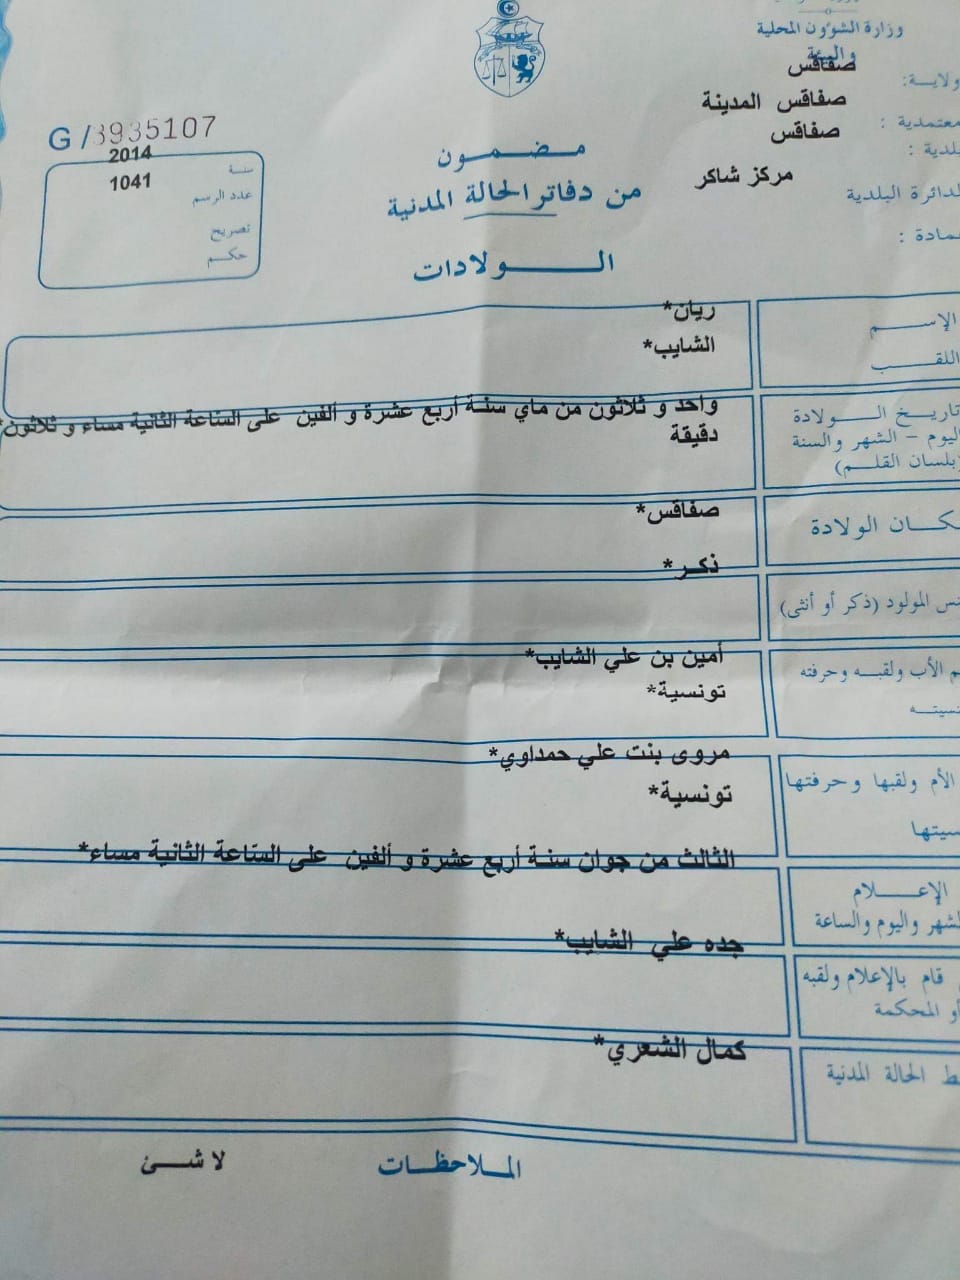 وزارة الشؤون المحلية
والبيئة
ولايـــة: صفاقس
معتمدية : صفاقس المدينة
بلدية : صفاقس
الدائرة البلدية مركز شاكر
عمادة :
G /3935107
سنة 2014
عدد الرسم 1041
تصريح
حكم
مضمون
من دفاتر الحالة المدنية
الولادات
الإسم ريان*
اللقب الشايب*
تاريخ الولادة
اليوم – الشهر والسنة
(بلسان القلم)
واحد و ثلاثون من ماي سنة أربع عشرة و ألفين على الساعة الثانية مساء و ثلاثون
دقيقة
مكان الولادة صفاقس*
جنس المولود (ذكر أو أنثى) ذكر*
الأب ولقبه وحرفته أمين بن علي الشايب*
تونسية*
الأم ولقبها وحرفتها مروى بنت علي حمداوي*
تونسية*
الإعلام
الشهر واليوم والساعة
الثالث من جوان سنة أربع عشرة و ألفين على الساعة الثانية مساء*
قام بالإعلام ولقبه
أو المحكمة
جده علي الشايب*
الحالة المدنية كمال الشعري*
الملاحظات لا شئ